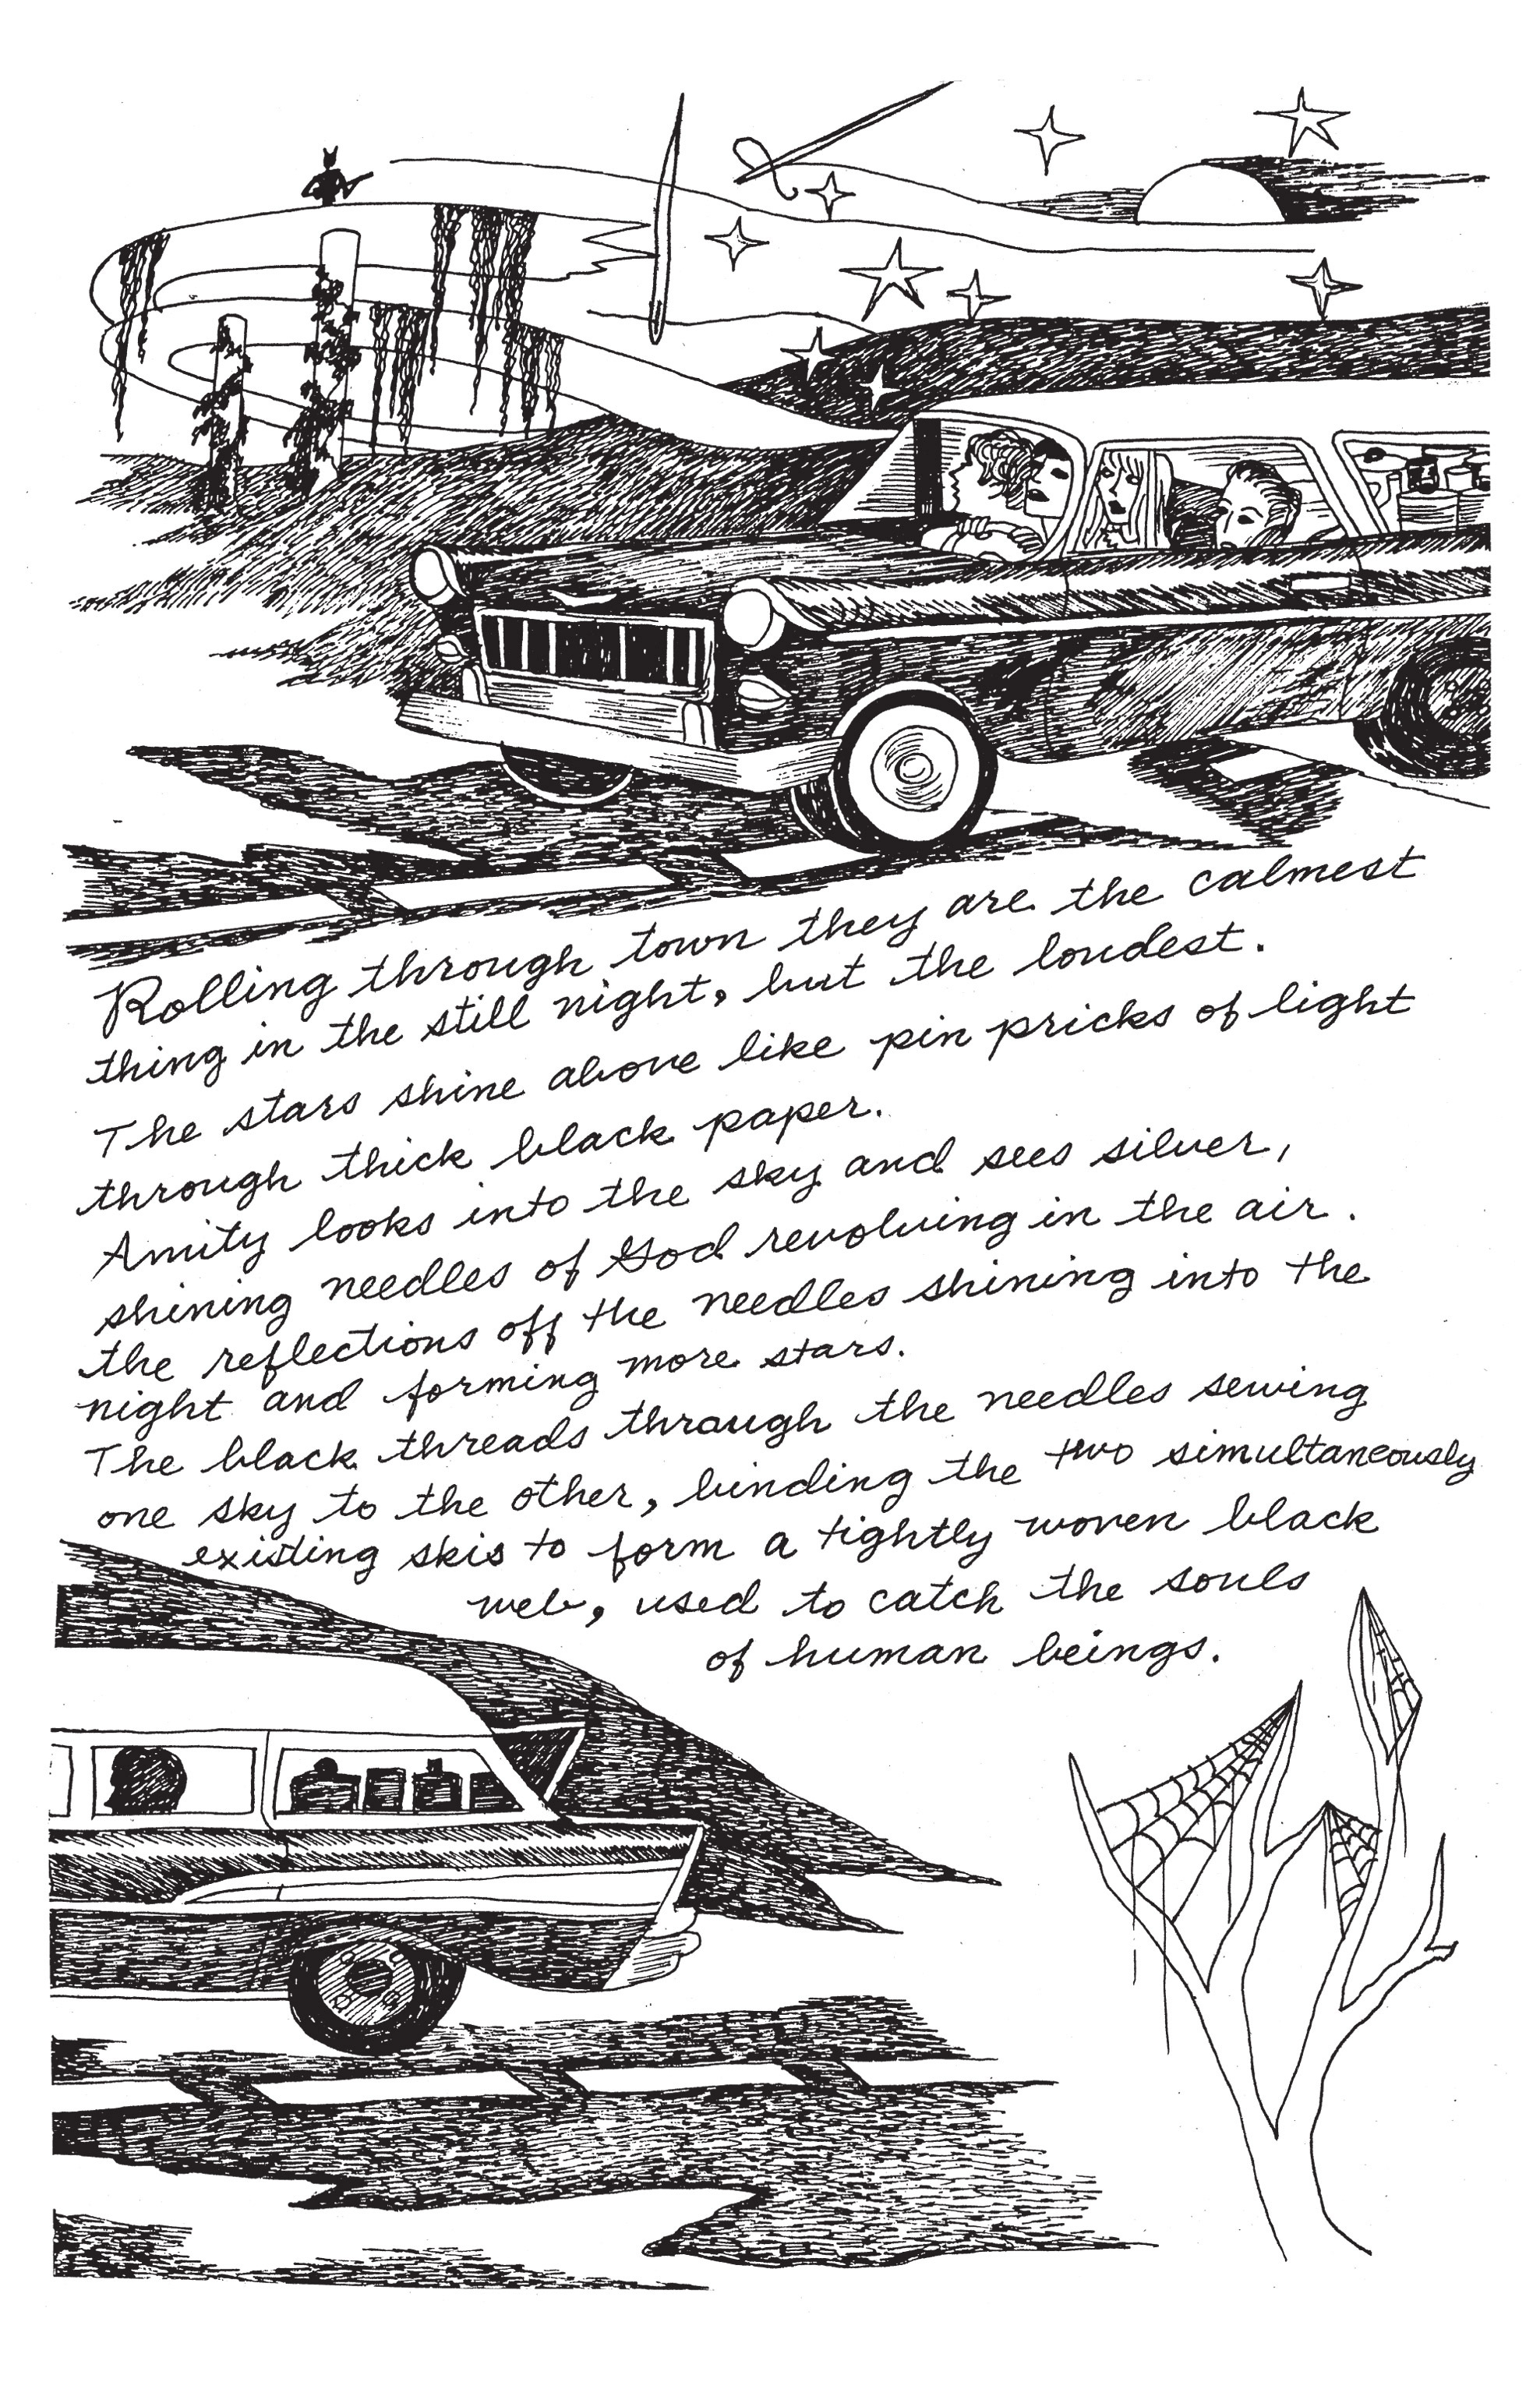 Rolling through town they are the calmest
thing in the still night, but the loudest.
The stars shine above like pin pricks of light
through thick black paper.
Amity looks into the sky and sees silver,
shining needles of God revolving in the air.
the reflections off the needles shining into the
night and forming more stars.
The black threads through the needles sewing
one sky to the other, binding the two simultaneously
existing skis to form a tightly woven black
web, used to catch the souls
of human beings.